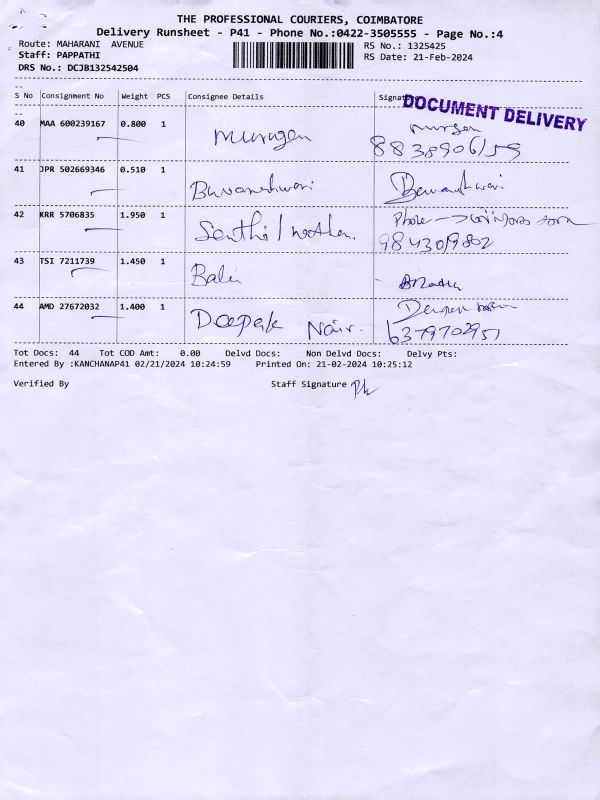 THE PROFESSIONAL COURIERS, COIMBATORE
Delivery Runsheet - P41 - Phone No.:0422-3505555 - Page No.:4
Route: MAHARANI AVENUE
RS No.: 1325425
Staff: PAPPATHI
RS Date: 21-Feb-2024
DRS No.: DCJB132542504
S No Consignment No Weight PCS Consignee Details Signature
DOCUMENT DELIVERY
40 MAA 600239167 0.800 1 Murugan
41 JPR 502669346 0.510 1 Buvaneshwari
42 KRR 5706835 1.950 1 Phone
9843019802
43 TSI 7211739 1.450 1
44 AMD 27672032 1.400 1 Deepak Nair.
6379702951
Tot Docs: 44 Tot COD Amt: 0.00 Delvd Docs: Non Delvd Docs: Delvy Pts:
Entered By :KANCHANAP41 02/21/2024 10:24:59 Printed On: 21-02-2024 10:25:12
Verified By Staff Signature